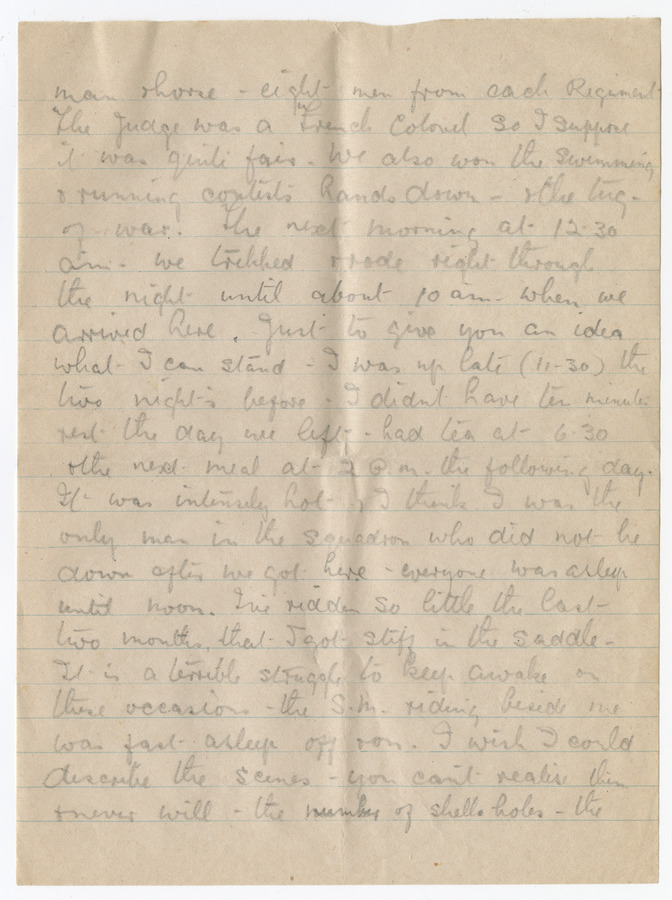 man & horse - eight men from each Regiment
The Judge was a French Colonel so I suppose
it was quite fair - We also won the swimming
& running contests hands down - & the tug-
of-war. The next morning at 12-30
am - we trekked & rode right through
the night until about 10 am - when we
arrived here. Just to give you an idea
what I can stand - I was up late (11-30) the
two nights before - I didnt have ten minutes
rest the day we left - had tea at 6-30
& the next meal at 2 p.m. the following day.
It was intensely hot & I think I was the
only man in the squadron who did not lie
down after we got here - everyone was asleep
until noon. I've ridden so little the last
two months, that I got stiff in the saddle -
It is a terrible struggle to keep awake on
these occasions - the S.M. riding beside me
was fast asleep off & on. I wish I could
describe the scenes - you can't realise them
& never will - the number of shell holes - the